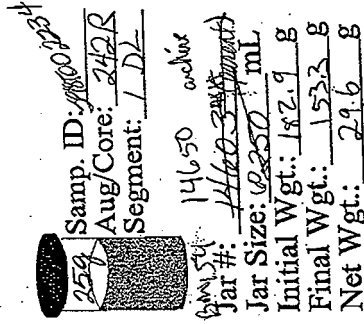 25g
Samp. ID: S98T002234
Aug/Core: 242R
Segment: 1 DL
14650 archive
Jar #: 14603
Jar Size: 250 mL
Initial Wgt.: 182.9 g
Final Wgt.: 153.3 g
Net Wgt.: 29.6 g